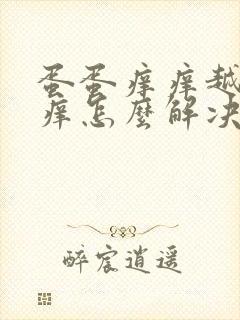 蛋蛋痒痒越
痒怎麽解决
醉宸逍遥